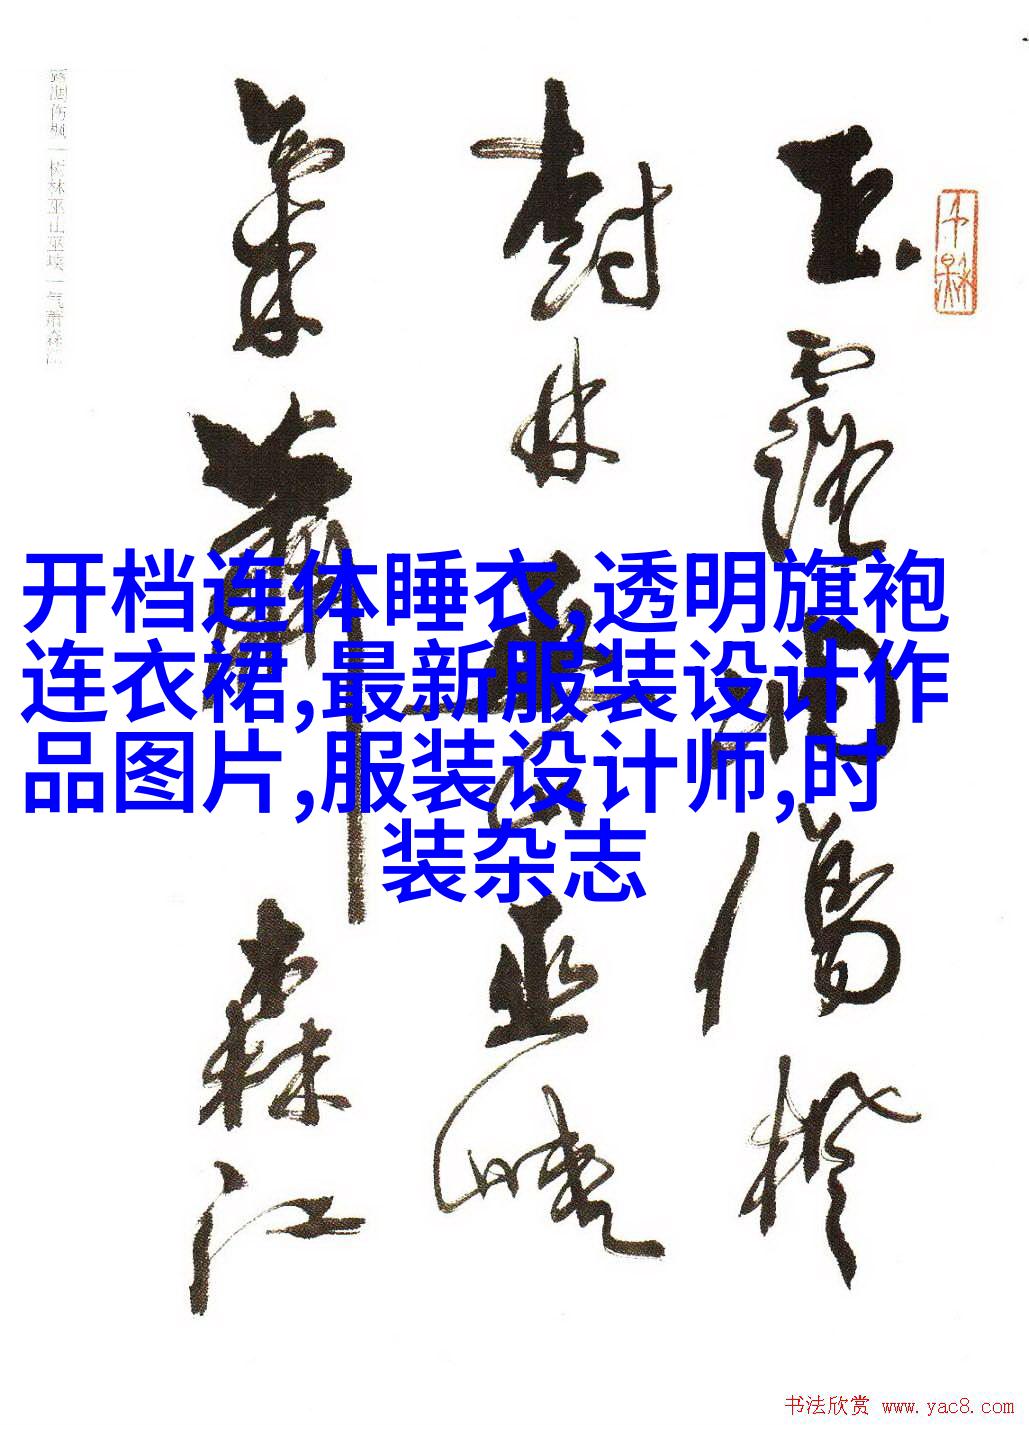 玉露凋傷楓
樹林巫山巫峽
氣蕭森江
开档连体睡衣,透明旗袍
连衣裙,最新服装设计作
品图片,服装设计师,时
装杂志
书法欣赏 www.yac8.com